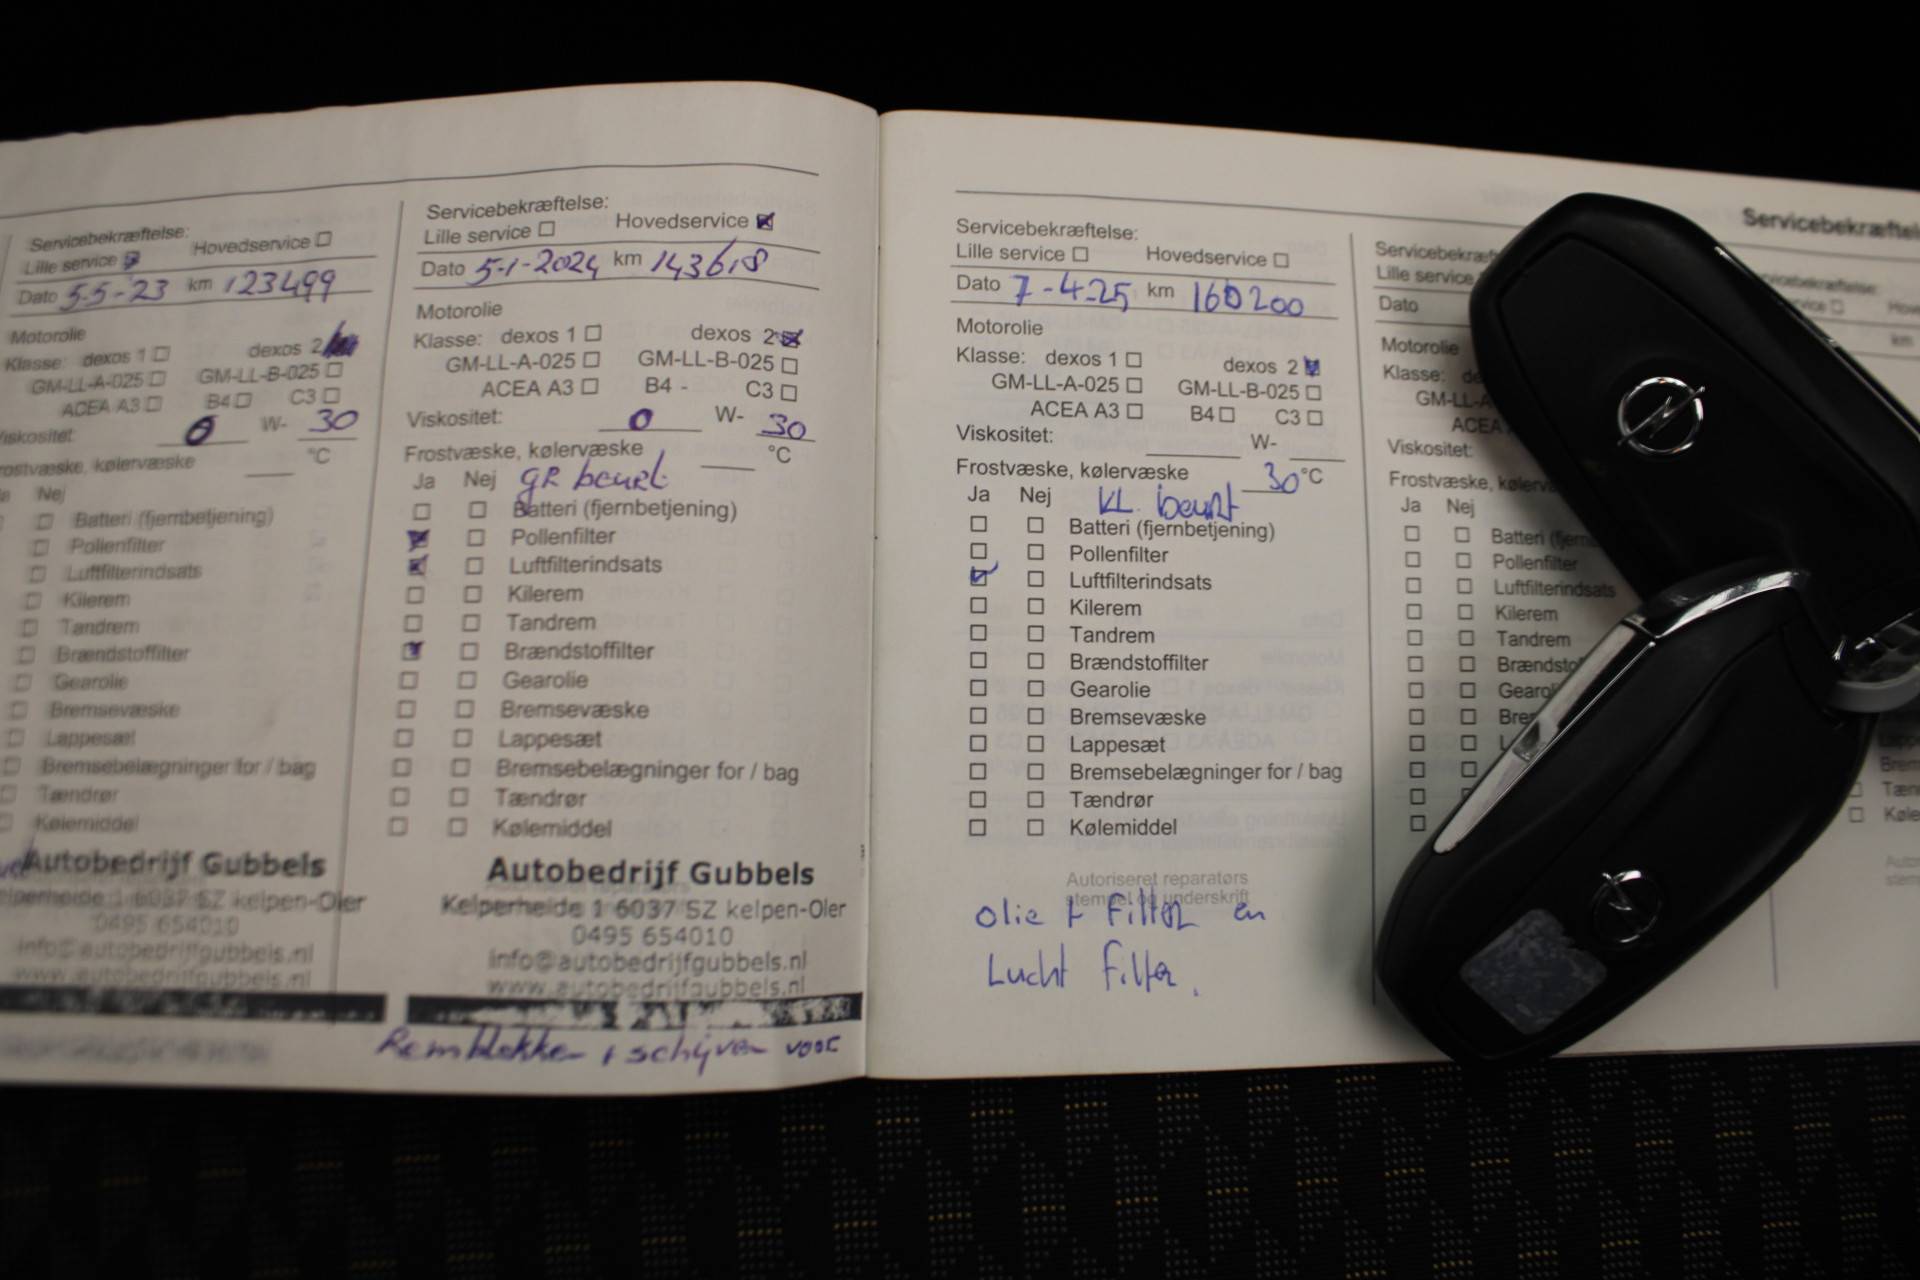 Servicebekræftelse:
Lille service Hovedservice
Dato 5-5-23 km 123499
Motorolie
Klasse: dexos 1 dexos 2
GM-LL-A-025 GM-LL-B-025
ACEA A3 B4 C3
Viskositet: 0 W- 30
Frostvæske, kølervæske °C
Nej
Batteri (fjernbetjening)
Pollenfilter
Luftfilterindsats
Kilerem
Tandrem
Brændstoffilter
Gearolie
Bremsevæske
Lappesæt
Bremsebelægninger for / bag
Tændrør
Kølemiddel
Autobedrijf Gubbels
Kelperheide 1 6037 SZ kelpen-Oler
0495 654010
info@autobedrijfgubbels.nl
www.autobedrijfgubbels.nl
Servicebekræftelse:
Lille service Hovedservice
Dato 5-1-2024 km 143618
Motorolie
Klasse: dexos 1 dexos 2
GM-LL-A-025 GM-LL-B-025
ACEA A3 B4 - C3
Viskositet: 0 W- 30
Frostvæske, kølervæske °C
Ja Nej gR beurt
Batteri (fjernbetjening)
Pollenfilter
Luftfilterindsats
Kilerem
Tandrem
Brændstoffilter
Gearolie
Bremsevæske
Lappesæt
Bremsebelægninger for / bag
Tændrør
Kølemiddel
Autobedrijf Gubbels
Kelperheide 1 6037 SZ kelpen-Oler
0495 654010
info@autobedrijfgubbels.nl
www.autobedrijfgubbels.nl
Remblokken + schijven voor
Servicebekræftelse:
Lille service Hovedservice
Dato 7-4-25 km 160200
Motorolie
Klasse: dexos 1 dexos 2
GM-LL-A-025 GM-LL-B-025
ACEA A3 B4 C3
Viskositet: W-
Frostvæske, kølervæske 30 °C
Ja Nej KL. beurt
Batteri (fjernbetjening)
Pollenfilter
Luftfilterindsats
Kilerem
Tandrem
Brændstoffilter
Gearolie
Bremsevæske
Lappesæt
Bremsebelægninger for / bag
Tændrør
Kølemiddel
Autoriseret reparatørs
stempel og underskrift
olie + Filter en
Lucht Filter.
Lille service
Dato
Motorolie
Klasse:
GM-LL-A
ACEA
Viskositet:
Frostvæske,
Ja Nej
Batteri
Pollenfilter
Luftfilterindsats
Kilerem
Tandrem
km